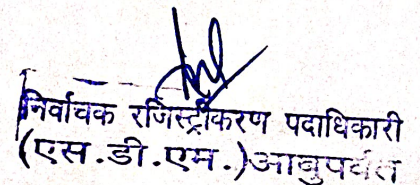 निर्वाचक रजिस्ट्रीकरण पदाधिकारी
(एस.डी.एम.)आबुपर्वत